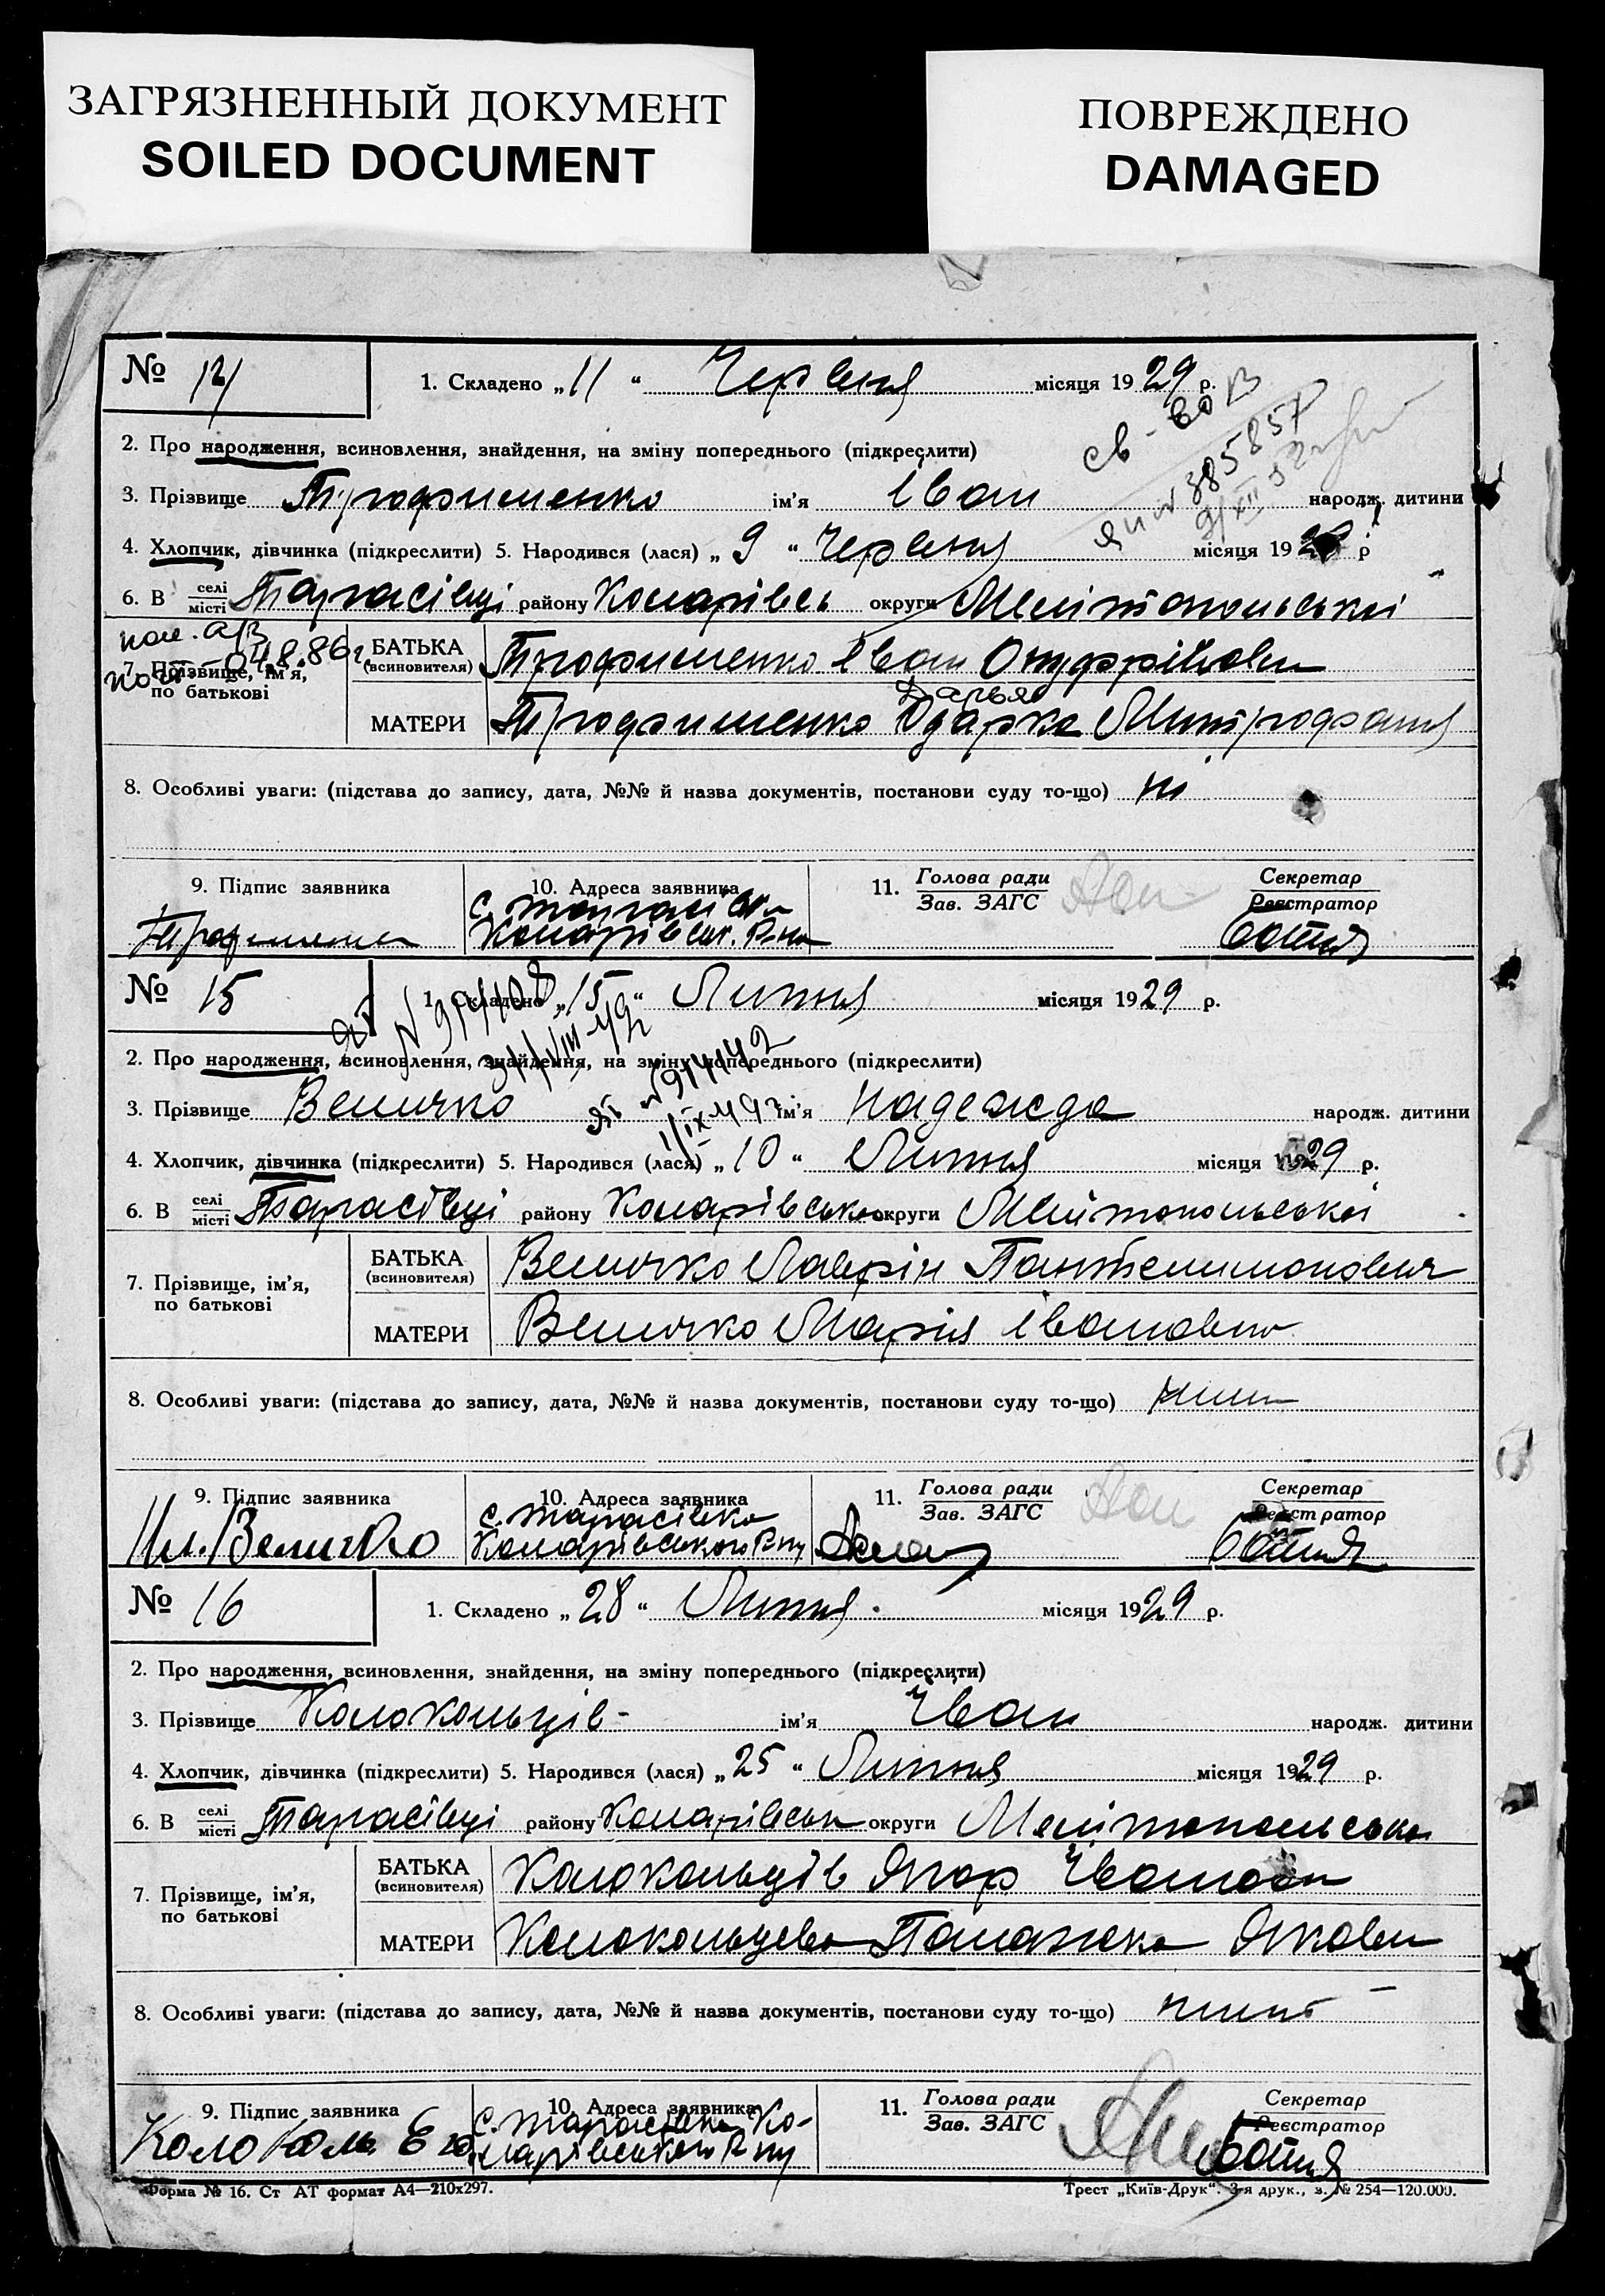 ЗАГРЯЗНЕННЫЙ ДОКУМЕНТ
SOILED DOCUMENT
ПОВРЕЖДЕНО
DAMAGED
№ 14 1. Складено „11“ Червня місяця 1929 р.
св-во В
385857
2. Про народження, всиновлення, знайдення, на зміну попереднього (підкреслити)
3. Прізвище Трофименко ім’я Іван народж. дитини
4. Хлопчик, дівчинка (підкреслити) 5. Народився (лася) „9“ Червня місяця 19 р
6. В селі місті Тарасівці району Комарівсь округи Мелітопольської
04.8.86
7. Прізвище, ім’я, по батькові
БАТЬКА (всиновителя) Трофименко Іван Онуфрійович
Дарья
МАТЕРИ Трофименко Одарка Митрофан
8. Особливі уваги: (підстава до запису, дата, №№ й назва документів, постанови суду то-що) ні
9. Підпис заявника 10. Адреса заявника 11. Голова ради Зав. ЗАГС Секретар Реєстратор
с. Тарасівка
Комарівськ. Р-на
№ 15 1. Складено „15“ Липня місяця 1929 р.
2. Про народження, всиновлення, знайдення, на зміну попереднього (підкреслити)
3. Прізвище Величко ім’я Надежда народж. дитини
4. Хлопчик, дівчинка (підкреслити) 5. Народився (лася) „10“ Липня місяця 1929 р.
6. В селі місті Тарасівці району Комарівсько округи Мелітопольської
7. Прізвище, ім’я, по батькові
БАТЬКА (всиновителя) Величко Лаврін Пантелимонович
МАТЕРИ Величко Марія Івановно
8. Особливі уваги: (підстава до запису, дата, №№ й назва документів, постанови суду то-що)
9. Підпис заявника 10. Адреса заявника 11. Голова ради Зав. ЗАГС Секретар Реєстратор
с. Тарасівка
Величко Комарівського Р-ну
№ 16 1. Складено „28“ Липня місяця 1929 р.
2. Про народження, всиновлення, знайдення, на зміну попереднього (підкреслити)
3. Прізвище Колокольців ім’я Іван народж. дитини
4. Хлопчик, дівчинка (підкреслити) 5. Народився (лася) „25“ Липня місяця 1929 р.
6. В селі місті Тарасівці району Комарівськ округи Мелітопольська
7. Прізвище, ім’я, по батькові
БАТЬКА (всиновителя) Колокольців Ягор
МАТЕРИ Колокольцева Паланека Якович
8. Особливі уваги: (підстава до запису, дата, №№ й назва документів, постанови суду то-що)
9. Підпис заявника 10. Адреса заявника 11. Голова ради Зав. ЗАГС Секретар Реєстратор
с. Тарасівка Ко-
марівського Р-ну
Форма № 16. Ст АТ формат А4—210х297.
Трест „Київ-Друк“. 3-я друк., з. № 254—120.000.